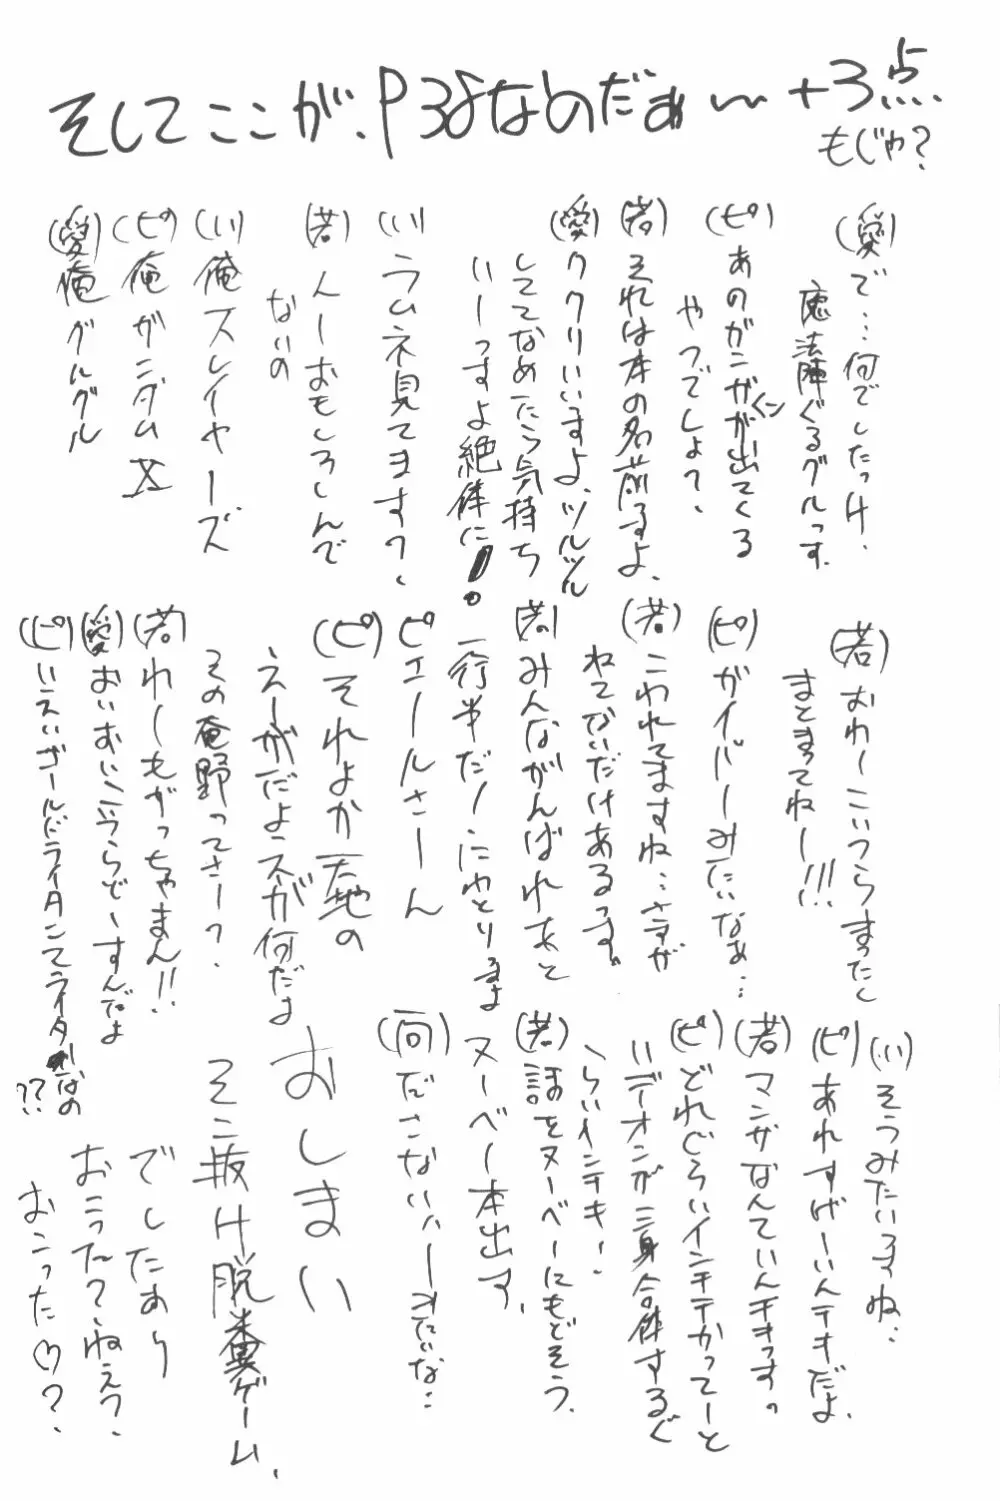 そしてここが、P38なのだぁ〜+3点
もじゃ?
(愛)で…何でしたっけ、
魔法陣ぐるグルっす。
(ピ)あのガンガンが出てくる
やつでしょ?、
(若)それは本の名前るよ、
(愛)ククリいいますよ、ツルツル
しててなめたら気持ち
いーっすよ絶体に!。
(い)ラムネ見てます?、
(若)人ーおもしろしんで
ないの
(い)俺スレイヤーズ
(ピ)俺ガンダムX
(愛)俺グルグル
(若)おわーこいつらまったく
まとまってねー!!!
(ピ)ガイバーみたいなぁ…
(若)こわれてますね…さすが
ねてないだけあるっす。
(若)みんながんばれあと
一行半だ!にわとりるよ
ピエールさーん
(ピ)それよか天地の
えーがだよスが何だよ
その庵野ってさー?
(若)れーもがっちゃまん!!
(愛)おいおいこりゃどーすんだよ
(ピ)いえいゴールドライタンてライターなの
??
(い)そうみたいすね…
(ピ)あれすげーいんテキだよ、
(若)マンガなんていんチキっす。
(ピ)どれぐらいインチテかってーと
いデオンが三身合体するぐ
らいインテキ!
(若)話をヌーベーにもどそう、
ヌーベー本出す、
(一同)ださないハーきたいな…
おしまい
そこ抜け脱糞ゲーム、
でしたあり
おこった?、ねえ?、
おこった♡?、